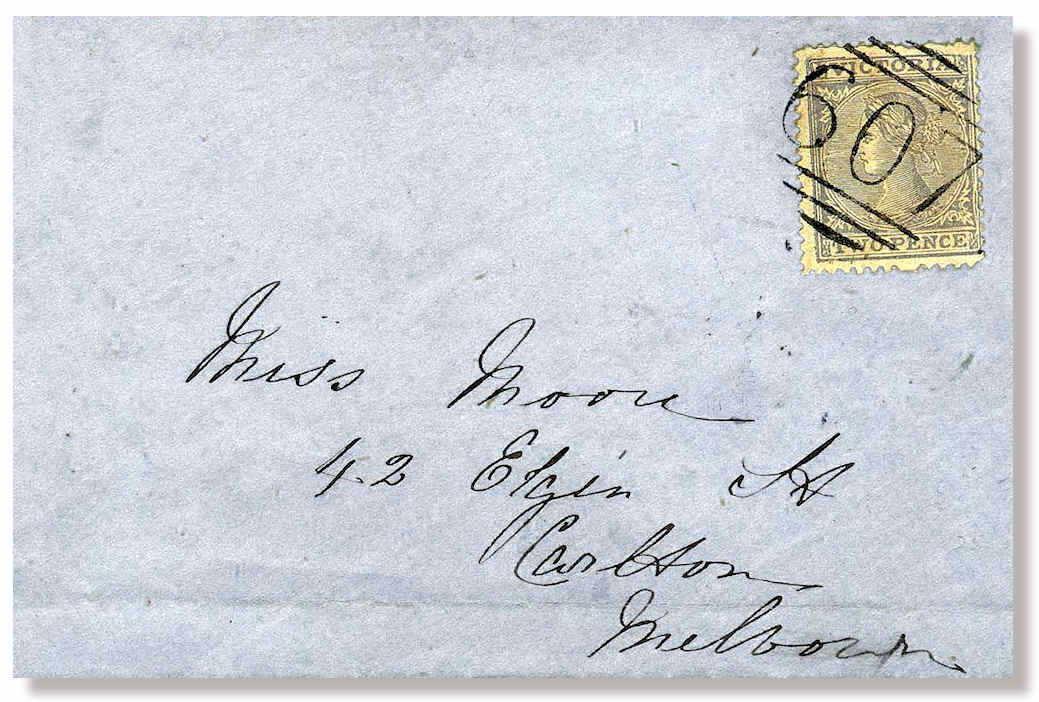 VICTORIA
607
TWO PENCE
Miss Moore
42 Elgin St
Carlton
Melbourne